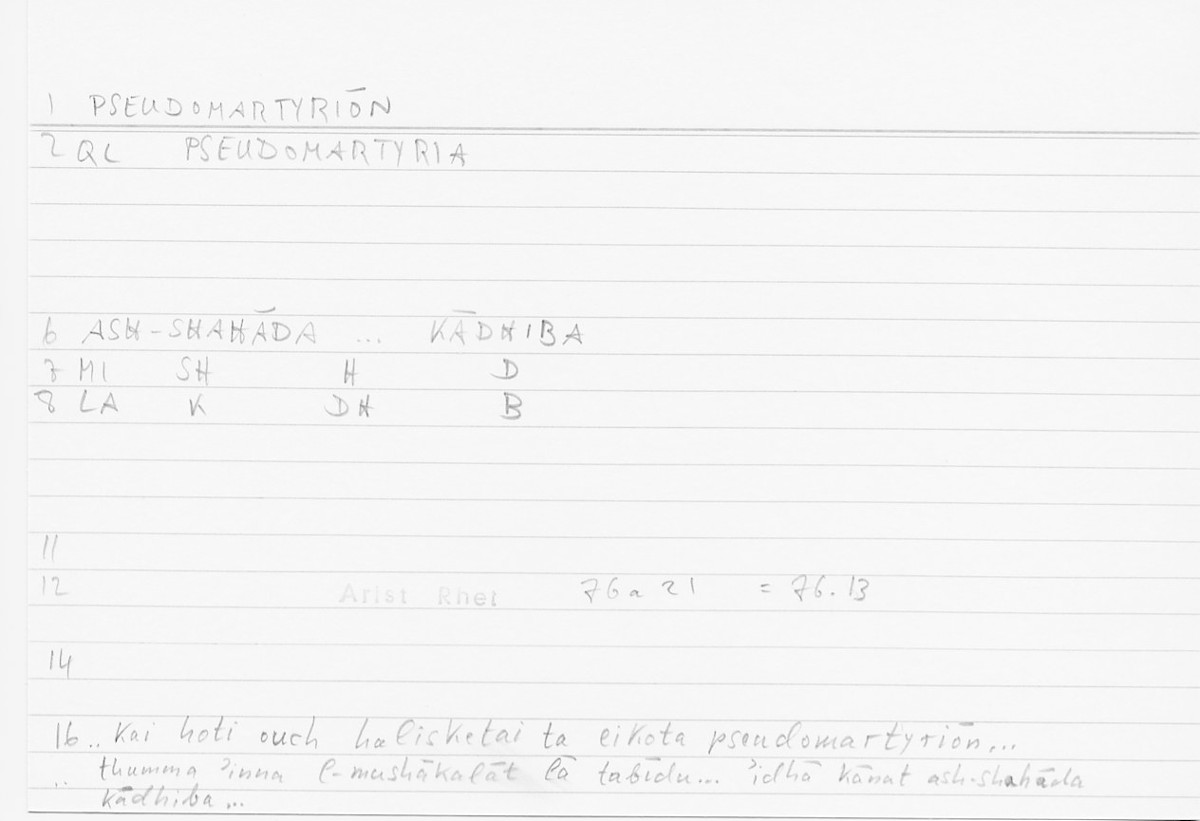 1 PSEUDOMARTYRIŌN
2 QL PSEUDOMARTYRIA
6 ASH-SHAHĀDA ... KĀDHIBA
7 MI SH H D
8 LA K DH B
11
12 Arist Rhet 76a21 = 76.13
14
16.. kai hoti ouch halisketai ta eikota pseudomartyriōn...
.. thumma ʾinna l-mushākalāt lā tabīdu... ʾidhā kānat ash-shahāda
kādhiba...